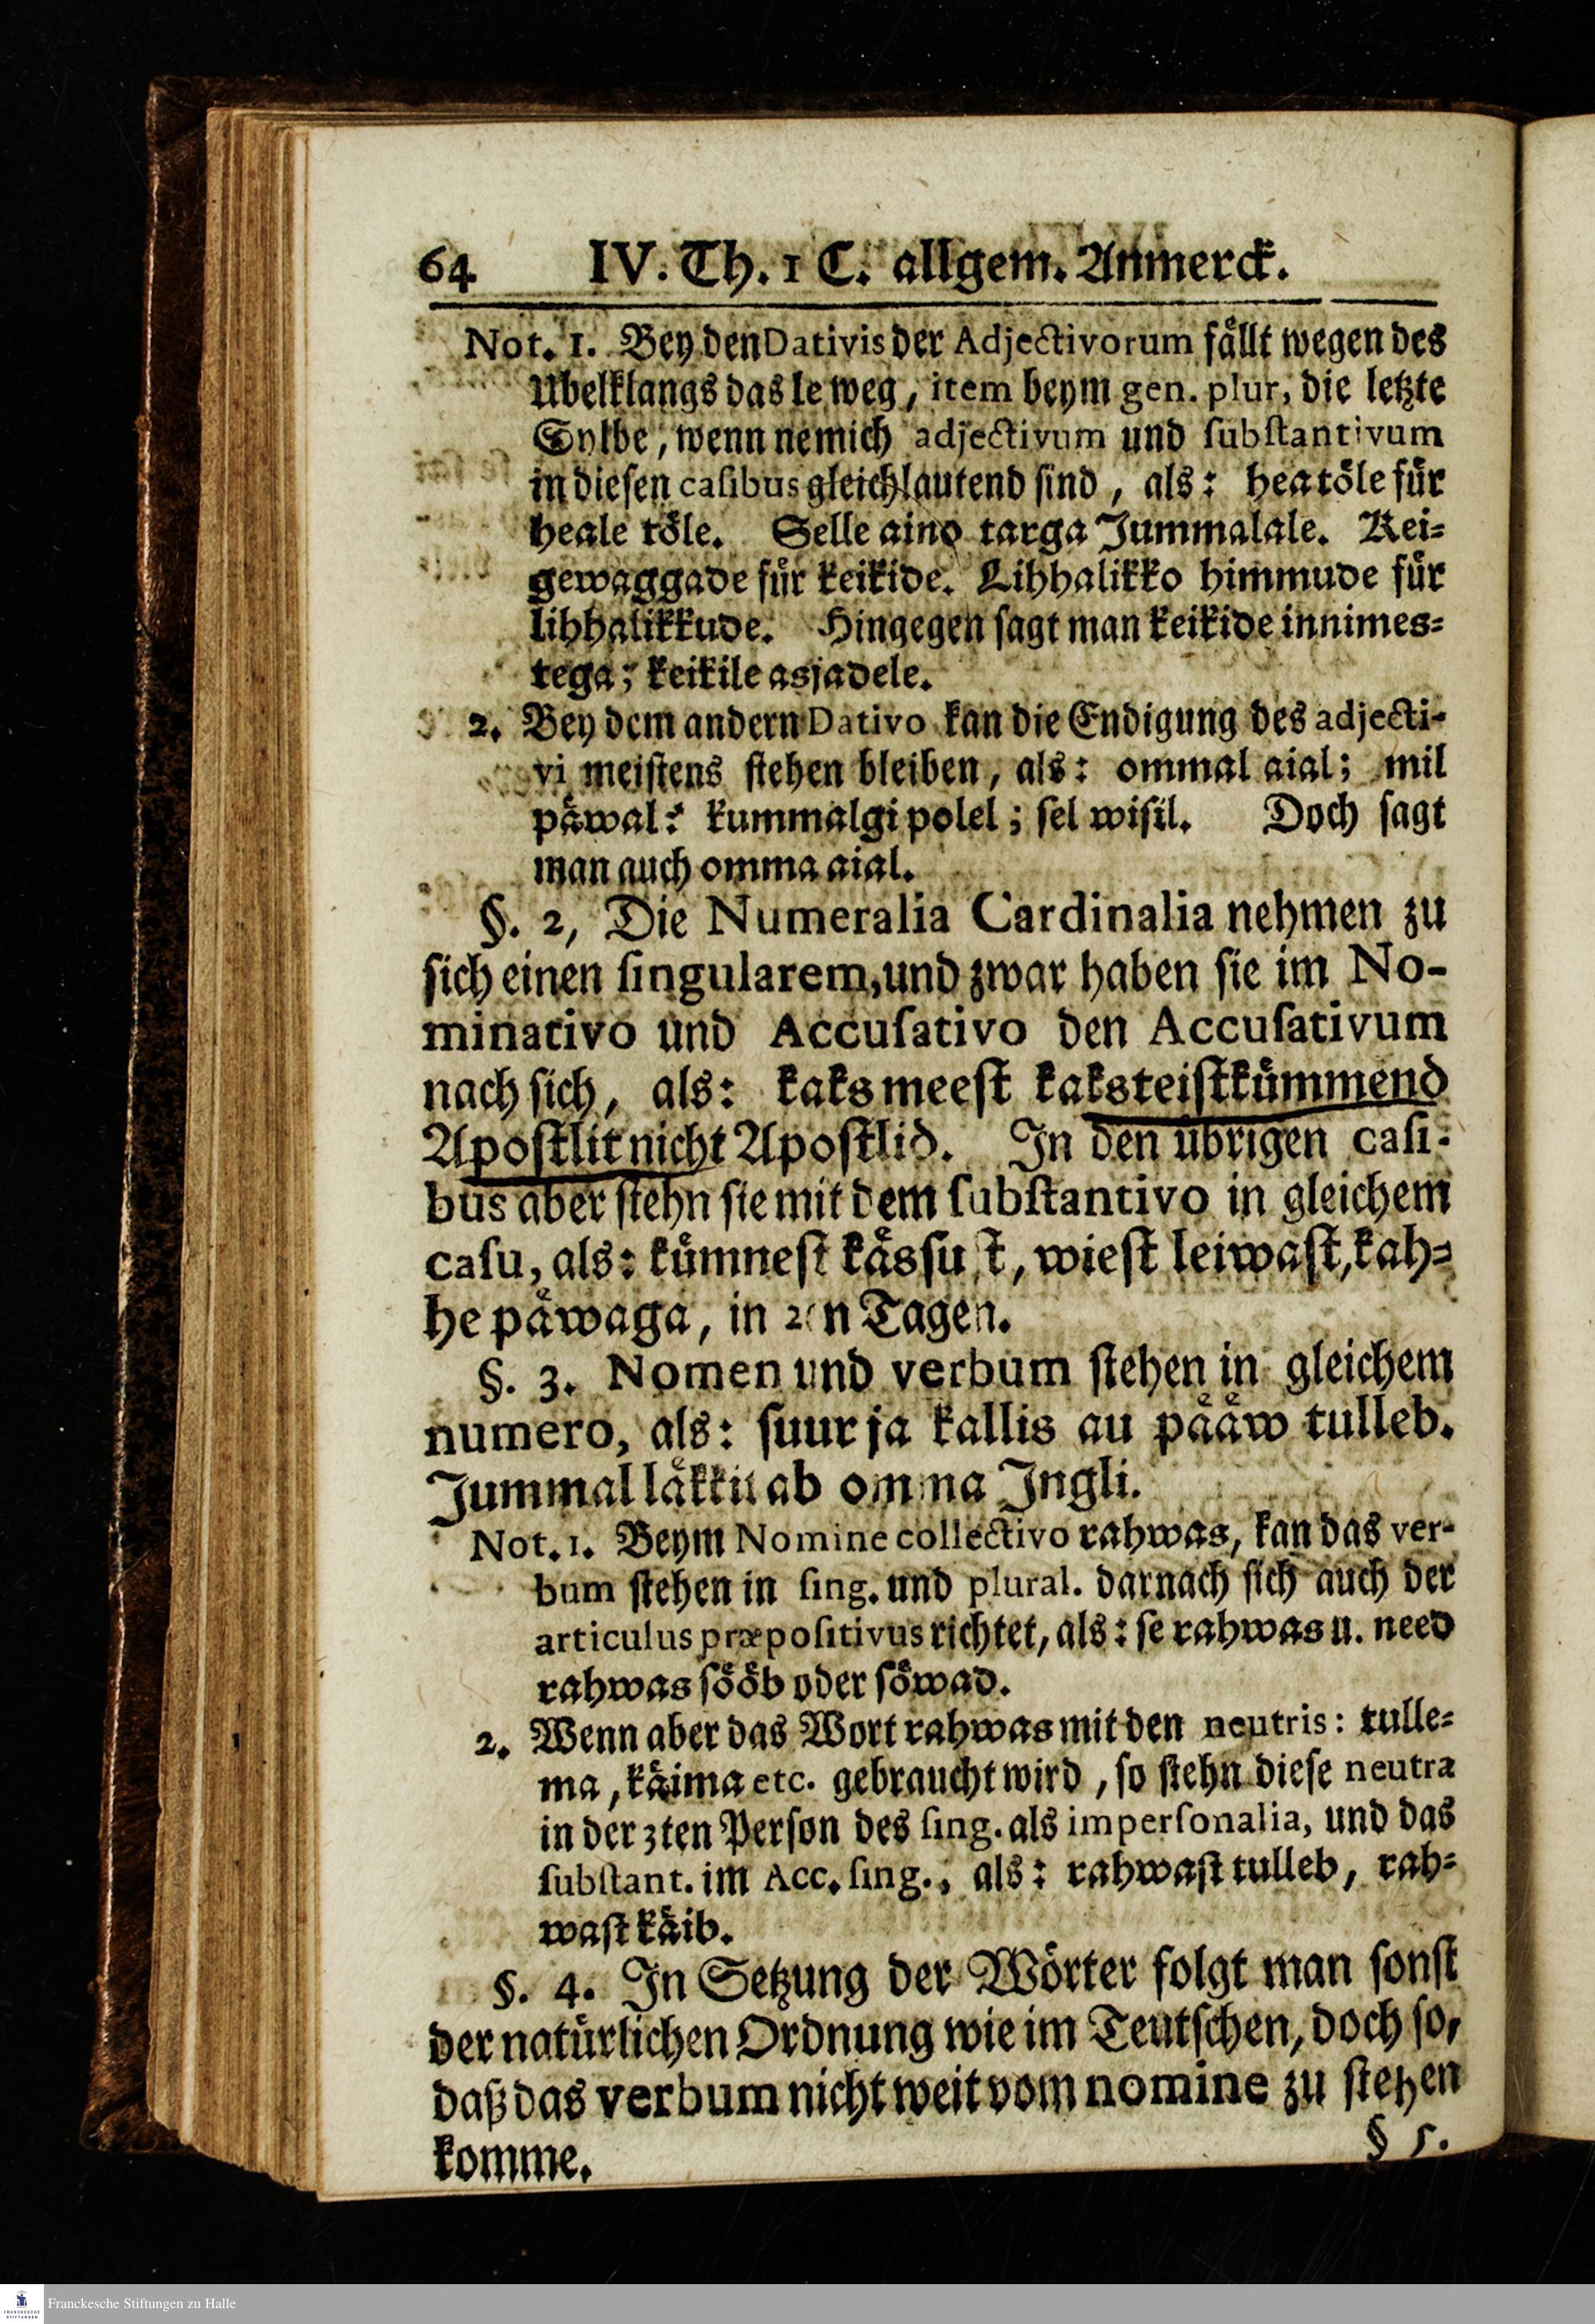 64 IV. Th. 1 C. allgem. Anmerck.
Not. 1. Bey den Dativis der Adjectivorum fållt wegen des
Ubelklangs das le weg, item beym gen. plur, die letzte
Sylbe, wenn nemich adjectivum und ſubſtantivum
in dieſen caſibus gleichlautend ſind, als: hea tôle fůr
heale tôle. Selle aino targa Jummalale. Kei⸗
gewaggade fůr keikide. Lihhalikko himmude fůr
lihhalikkude. Hingegen ſagt man keikide innimes⸗
tega; keikile asjadele.
2. Bey dem andern Dativo kan die Endigung des adjecti-
vi meiſtens ſtehen bleiben, als: ommal aial; mil
påwal: kummalgi polel; ſel wiſil. Doch ſagt
man auch omma aial.
§. 2, Die Numeralia Cardinalia nehmen zu
ſich einen ſingularem, und zwar haben ſie im No-
minativo und Accuſativo den Accuſativum
nach ſich, als: kaks meeſt kaksteiſtkůmmend
Apoſtlit nicht Apoſtlid. In den ůbrigen caſi-
bus aber ſtehn ſie mit dem ſubſtantivo in gleichem
caſu, als: kůmneſt kåsſu t, wieſt leiwaſt, kah⸗
he påwaga, in 2 n Tagen.
§. 3. Nomen und verbum ſtehen in gleichem
numero, als: ſuur ja kallis au pååw tulleb.
Jummal låkkitab omma Jngli.
Not. 1. Beym Nomine collectivo rahwas, kan das ver-
bum ſtehen in ſing. und plural. darnach ſich auch der
articulus præpoſitivus richtet, als: ſe rahwas u. need
rahwas ſôôb oder ſôwad.
2. Wenn aber das Wort rahwas mit den neutris: tulle⸗
ma, kåima etc. gebraucht wird, ſo ſtehn dieſe neutra
in der 3ten Perſon des ſing. als imperſonalia, und das
ſubſtant. im Acc. ſing., als: rahwaſt tulleb, rah⸗
waſt kåib.
§. 4. In Setzung der Wôrter folgt man ſonſt
der natůrlichen Ordnung wie im Teutſchen, doch ſo,
daß das verbum nicht weit vom nomine zu ſtehen
komme.
§ 5.
Franckesche Stiftungen zu Halle